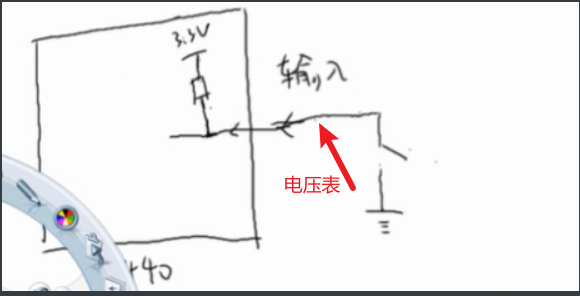 3.3V
输入
电压表
+40